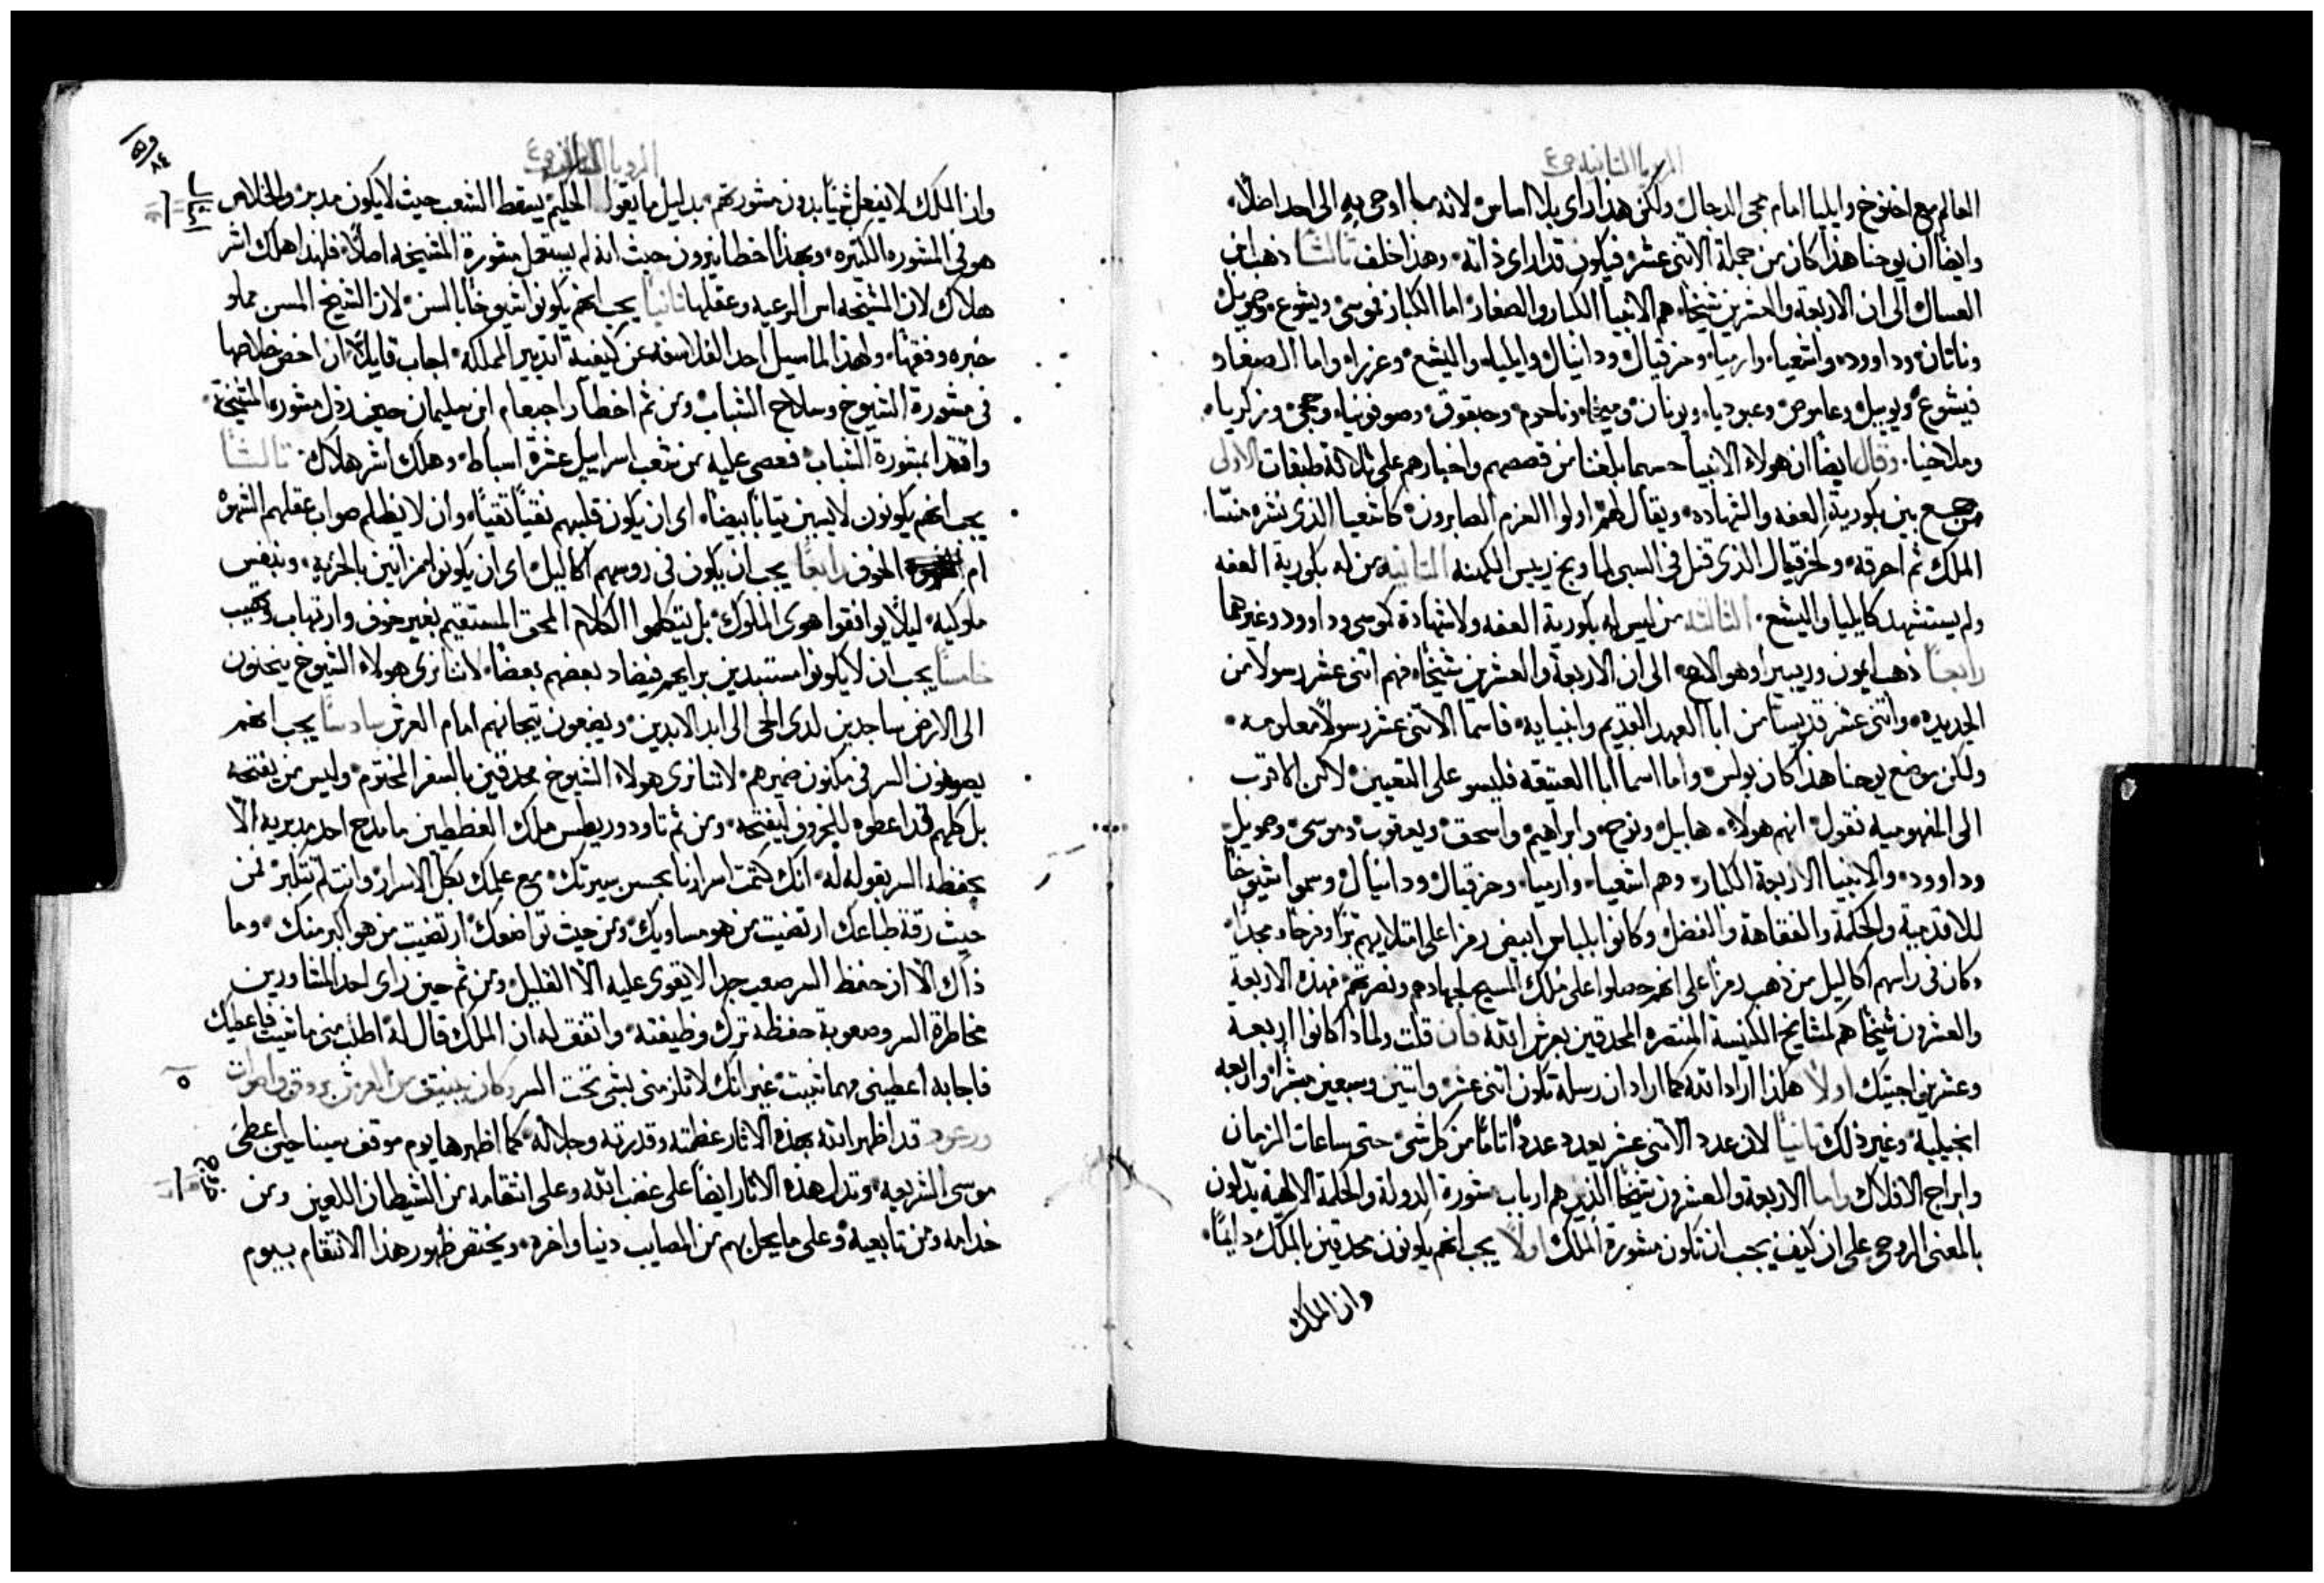 الرويا الثانيه ص ع
العالم مع اخنوخ وايليا امام مجي الدجال ولكن هذا راي بلا اساس لانه ما اوحي به الى احد اصلًا
وايضًا ان يوحنا هذا كان من جملة الاثني عشر فيكون قد راى ذاته وهذا خلف ثالثًا ذهب ابن
العسال الى ان الاربعة والعشرين شيخًا هم الانبيا الكبار والصغار اما الكبار فموسى ويشوع وصمويل
وناتان وداوود واشعيا وارميا وحزقيال ودانيال وايليا واليشع وعزرا واما الصغار
فيشوع ويوييل وعاموص وعبوديا ويونان وميخا وناحوم وحبقوق وصوفونيا وحجي وزكريا
وملاخيا وقال ايضًا ان هولاء الانبيا حسبما بلغنا من قصصهم واخبارهم على ثلاثة طبقات الاولى
من جمع بين بكورية العفه والشهاده ويقال لهم اولوا العزم الصابرون كاشعيا الذي نشره منسا
الملك ثم احرقه وكحزقيال الذي قتل في السبي لما وبخ رييس الكهنه الثانيه من له بكورية العفه
ولم يستشهد كايليا واليشع الثالثه من ليس له بكورية العفه ولا شهادة كموسى وداوود وغيرهما
رابعًا ذهب وريبيرا وهو الاصح الى ان الاربعة والعشرين شيخًا فهم اثني عشر رسولا من
الجديده واثني عشر قديسًا من ابا العهد القديم وانبيايه فاسما الاثني عشر رسولًا معلومه
ولكن موضع يوحنا هذا كان بولس واما اسما ابا العتيقه فليسو على التعيين لاكن الاقرب
الى المفهوميه نقول انهم هولاء هابيل ونوح وابراهيم واسحق ويعقوب وموسى وصمويل
وداوود والانبيا الاربعة الكبار وهم اشعيا وارميا وحزقيال ودانيال وسموا شيوخًا
للاقدمية والحكمة والفقاهة والفضل وكانوا بلباس ابيض رمزا على امتلايهم برًا وفرحًا ومجدًا
وكان في راسهم اكاليل من ذهب رمزًا على انهم حصلوا على ملك المسيح بجهادهم ونصرتهم فهذه الاربعة
والعشرون شيخًا هم لمشايخ الكنيسة المنتصره المحدقين بعرش الله فان قلت ولماذا كانوا اربعة
وعشرين اجيبك اولًا هكذا اراد الله كما اراد ان رسله تكون اثني عشر واثنين وسبعين مبشرًا واربعه
انجيلية وغير ذلك ثانيًا لان عدد الاثني عشر يعدد عددًا تامًا من كل شي حتى ساعات الزمان
وابراج الافلاك واما الاربعة والعشرون شيخًا الذين هم ارباب مشورة الدولة والحكمة الالهية يدلون
بالمعنى الروحي على ان كيف يجب ان تكون مشورة الملك اولًا يجب انهم يكونون محدقين بالملك دايمًا
وان الملك
الرويا الثانيه ص ع
وان الملك لا يفعل شيًا بدون مشورتهم بدليل ما يقول الحكيم يسقط الشعب حيث لا يكون مدبر والخلاص
هو في المشوره الكثيره وبهذا اخطا نيرون حيث انه لم يستعمل مشورة المشيخه اصلًا فلهذا هلك اشر
هلاك لان المشيخه اس الرعيه وعقلها ثانيًا يجب انهم يكونوا شيوخًا بالسن لان الشيخ المسن مملو
خبره وفقهًا ولهذا لما سيل احد الفلاسفه عن كيفية تدبير المملكه اجاب قايلًا ان اخص خلاصها
في مشورة الشيوخ وسلاح الشباب ومن ثم اخطا راحبعام ابن سليمان حين رذل مشورة المشيخة
واقتدا بمشورة الشباب فعصي عليه من شعب اسراييل عشرة اسباط وهلك اشر هلاك ثالثًا
يجب انهم يكونون لابسين ثيابًا بيضًا اي ان يكون قلبهم نقيًا تقيًا وان لا يظلم صواب عقلهم الشهوة
ام الخوف رابعًا يجب ان يكون في روسهم اكاليل اي ان يكونوا مزانين بالحريه وبنفس
ملوكيه ليلًا يوافقوا هوى الملوك بل يتكلموا الكلام المحق المستقيم بغير خوف وارتهاب وتهيب
خامسًا يجب ان لا يكونوا مستبدين برايهم فيضاد بعضهم بعضًا لاننا نرى هولاء الشيوخ ينحنون
الى الارض ساجدين لدى الحي الى ابد الابدين ويضعون تيجانهم امام العرش سادسًا يجب انهم
يصونون السر في مكنون ضميرهم لاننا نرى هولاء الشيوخ محدقين بالسفر المختوم وليس من يفتحه
بل كلهم قد اعطوه للخروف ليفتحه ومن ثم تاودوريطس ملك الغططيين ما مدح احد مدبريه الا
بحفظه السر بقوله له انك كتمت اسرارنا بحسن سيرتك مع علمك بكل الاسرار وانت لم تتكبر فمن
حيث رقة طباعك ارتضيت من هو مساويك ومن حيث تواضعك ارتضيت من هو اكبر منك وما
ذاك الا ان حفظ السر صعب جدا لا يقوى عليه الا القليل ومن ثم حين راى احد المشاورين
مخاطرة السر وصعوبة حفظه ترك وظيفته واتفق له ان الملك قال له اطلب مني ما شيت فاعطيك
فاجابه اعطيني مهما شيت غير انك لا تلزمني بشي تحت السر وكان ينبثق من العرش بروق واصوات
ورعود قد اظهر الله بهذه الاثار عظمته وقدرته وجلاله كما اظهرها يوم موقف سينا حين اعطى
موسى الشريعه وتدل هذه الاثار ايضًا على غضب الله وعلى انتقامه من الشيطان اللعين ومن
خدامه ومن تابعيه وعلى ما يحل بهم من المصايب دنيا واخره ويختص ظهور هذا الانتقام بيوم